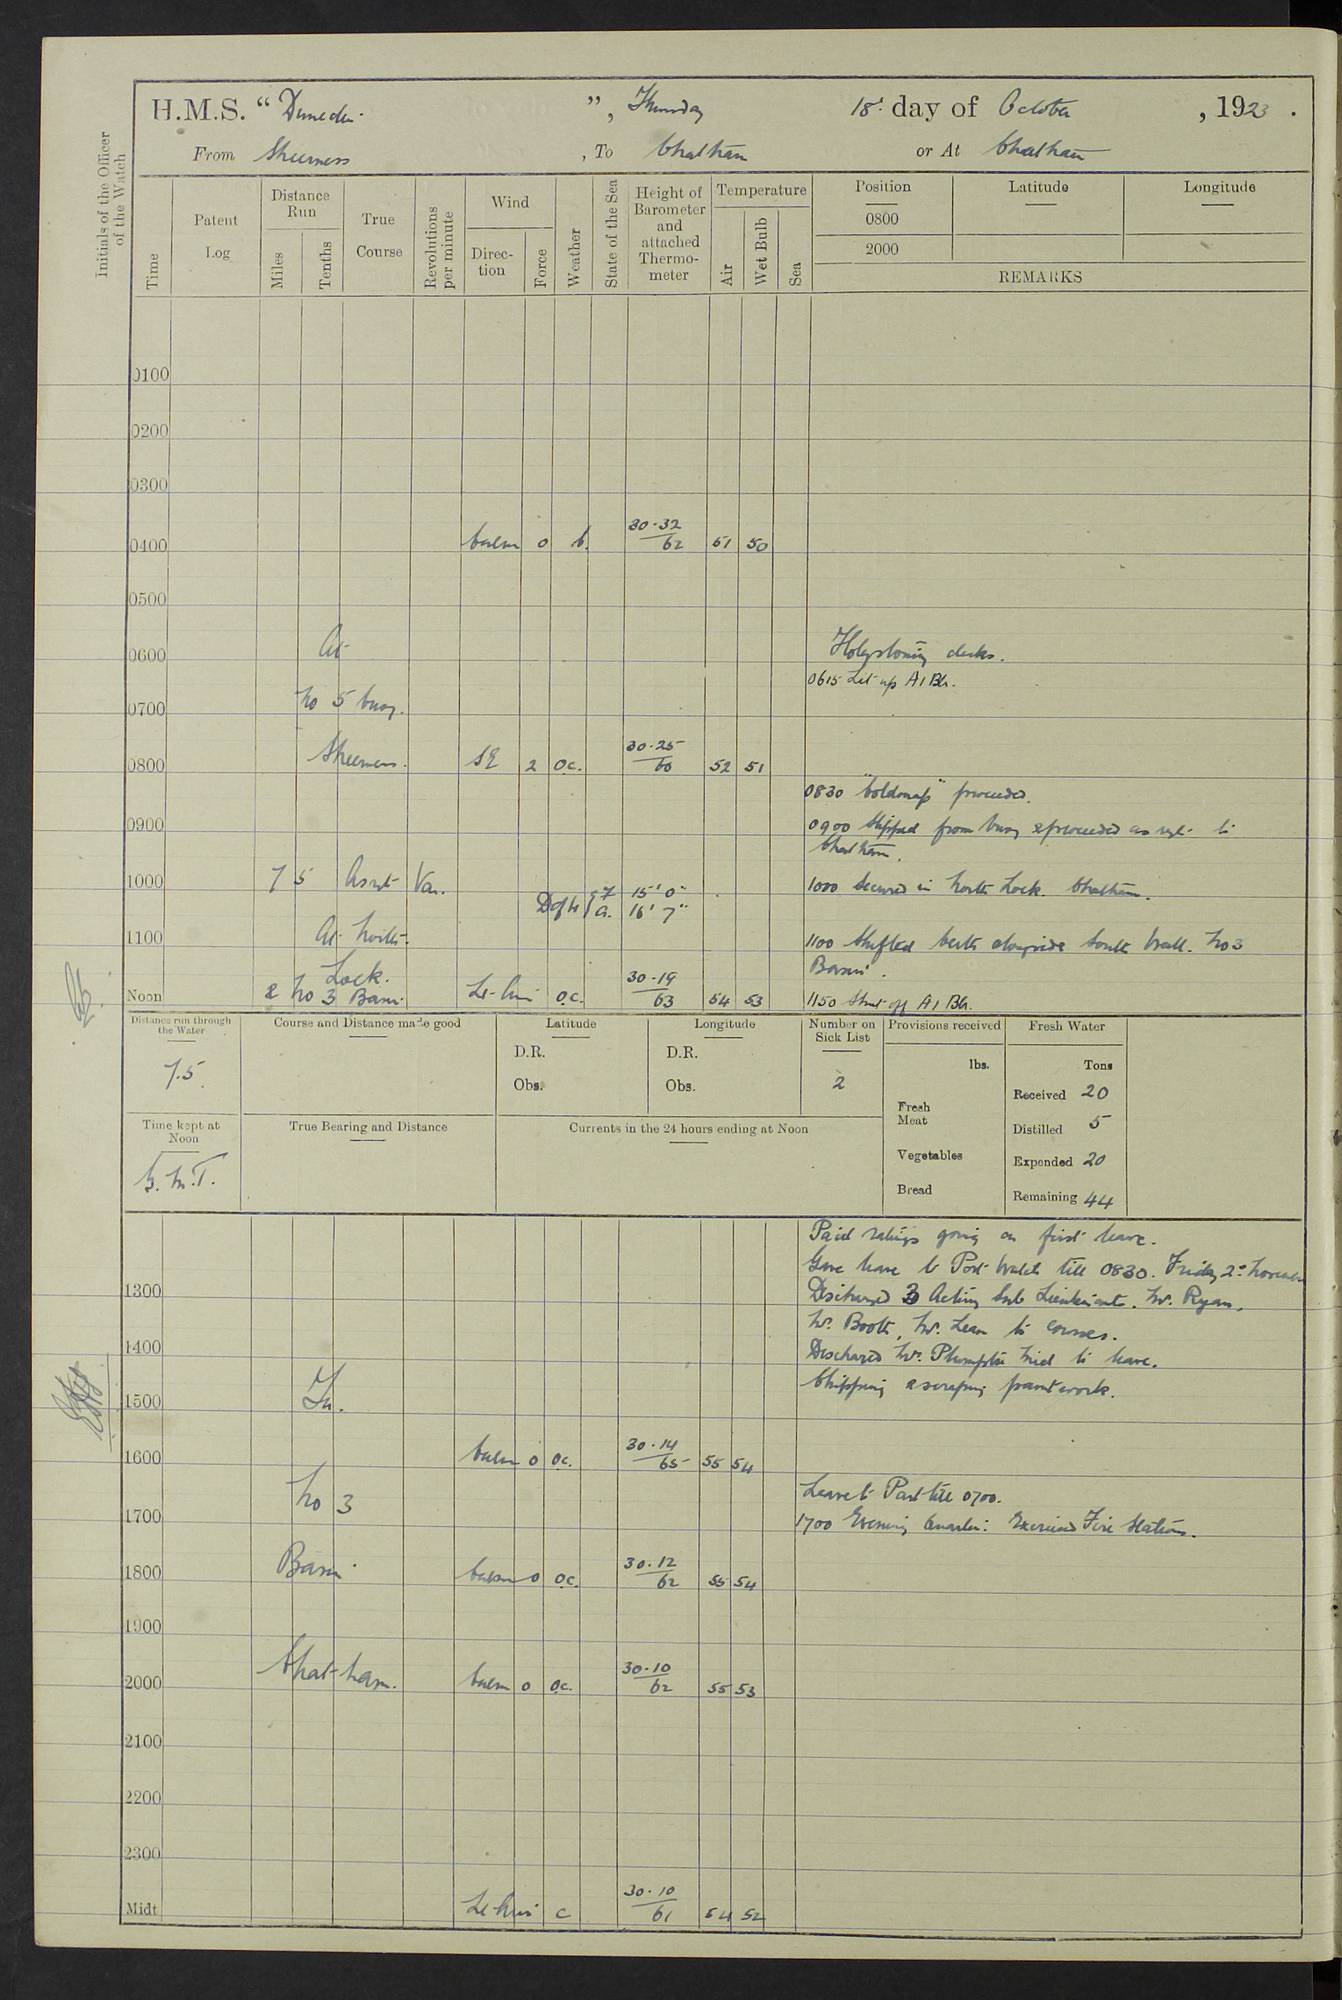 H.M.S. “ Dunedin ”, Thursday 18th day of October, 1923.
From Sheerness, To Chatham or At Chatham
Initials of the Officer of the Watch
Time
Patent Log
Distance Run
Miles
Tenths
True Course
Revolutions per minute
Wind
Direction
Force
Weather
State of the Sea
Height of Barometer and attached Thermometer
Temperature
Air
Wet Bulb
Sea
Position Latitude Longitude
0800
2000
REMARKS
0100
0200
0300
0400 Calm 0 b. 30.32 62 51 50
0500
0600 At Holystoning decks.
0615 Lit up A1 Blr.
0700 No 5 buoy.
0800 Sheerness. SE 2 oc. 30.25 60 52 51
0830 "Coldsnap" proceeded.
0900 0900 Slipped from buoy & proceeded as reqt to
Chatham.
1000 7 5 As reqt Var. 1000 Secured in North Lock Chatham.
Dqft F 15' 0"
A. 16' 7"
1100 At North 1100 Shifted berth alongside South Wall. No 3
Lock. Basin.
Noon & No 3 Basin Lt. Airs oc. 30.19 63 54 53 1150 Shut off A1 Blr.
Distance run through the Water
7.5
Course and Distance made good
Latitude
D.R.
Obs.
Longitude
D.R.
Obs.
Number on Sick List
2
Provisions received
lbs.
Fresh Meat
Vegetables
Bread
Fresh Water
Tons
Received 20
Distilled 5
Expended 20
Remaining 44
Time kept at Noon
G.M.T.
True Bearing and Distance
Currents in the 24 hours ending at Noon
Paid ratings going on first leave.
Gave leave to Port Watch till 0830. Friday 2nd November
1300 Discharged 3 Acting Sub Lieutenants. Mr. Ryan,
Mr. Booth, Mr. Lean to courses.
1400 Discharged Mr. Plumptre Mid to leave.
Chipping & scraping paintwork.
1500 In.
1600 Calm 0 oc. 30.14 65 55 54
No 3 Leave to Part till 0700.
1700 1700 Evening Quarters. Exercised Fire Stations.
1800 Basin Calm 0 oc. 30.12 62 55 54
1900
2000 Chatham. Calm 0 oc. 30.10 62 55 53
2100
2200
2300
Midt Lt Airs c 30.10 61 54 52